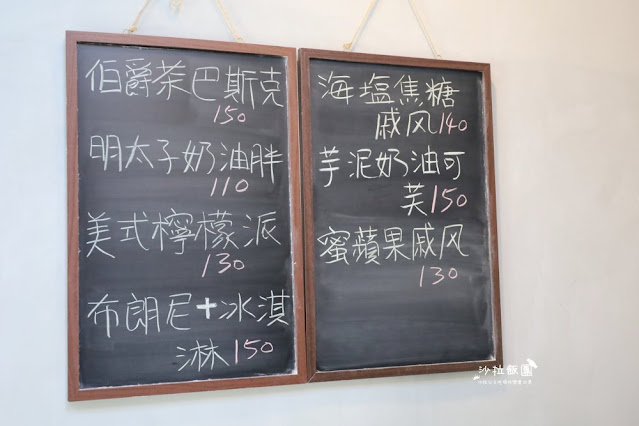 伯爵茶巴斯克
150
明太子奶油胖
110
美式檸檬派
130
布朗尼+冰淇
淋150
海塩焦糖
戚风140
芋泥奶油可
芙150
蜜蘋果戚风
130
沙拉飯團